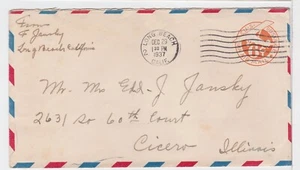 From
F Jansky
Long Beach California
LONG BEACH
DEC 20
1 30 PM
1937
CALIF.
6¢
Mr. Mrs Ed. J. Jansky
2631 So 60th Court
Cicero
Illinois